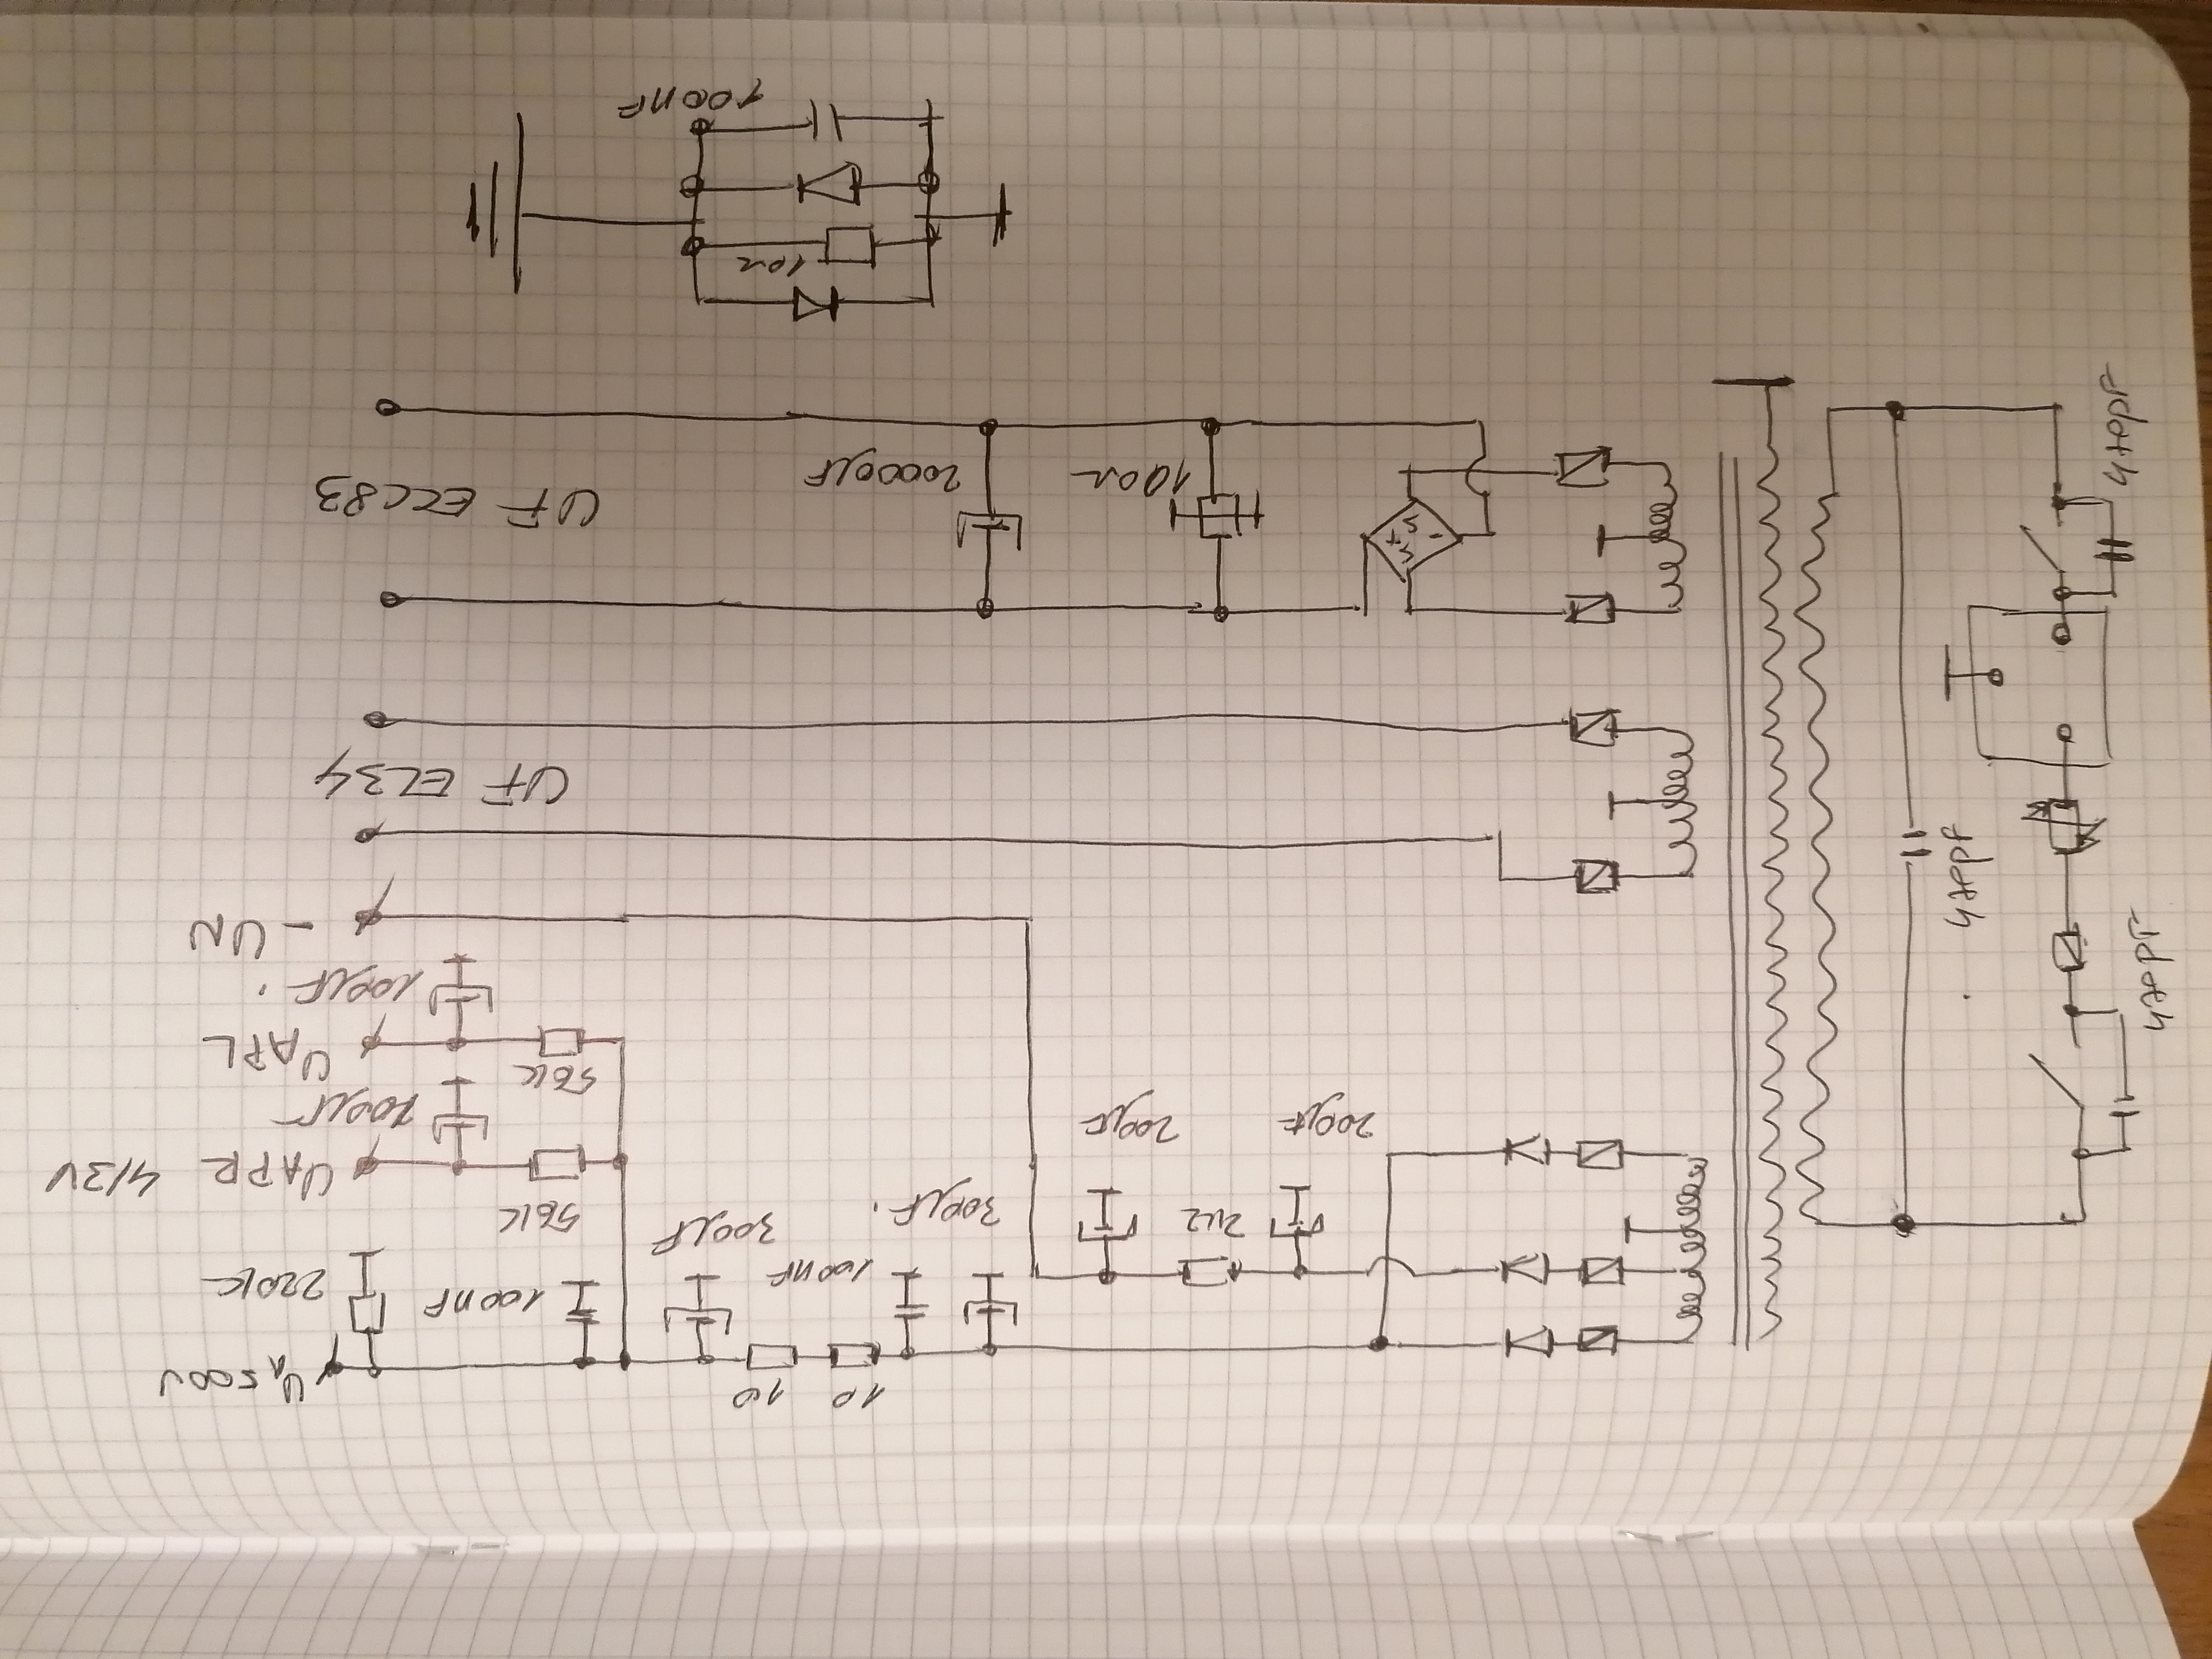 Ua 500V
220K
100nF
300µF
10
10
100nF
300µF.
200µF
2K2
200µF
56K
UAPR 413V
100µF
56K
UAPL
100µF
- UN
UF EL34
UF ECC83
20000µF
100Ω
10Ω
100nF
47nF